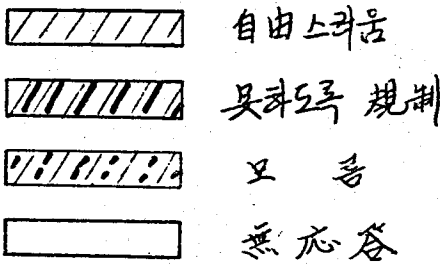 自由스러움
못하도록 規制
모름
無応答